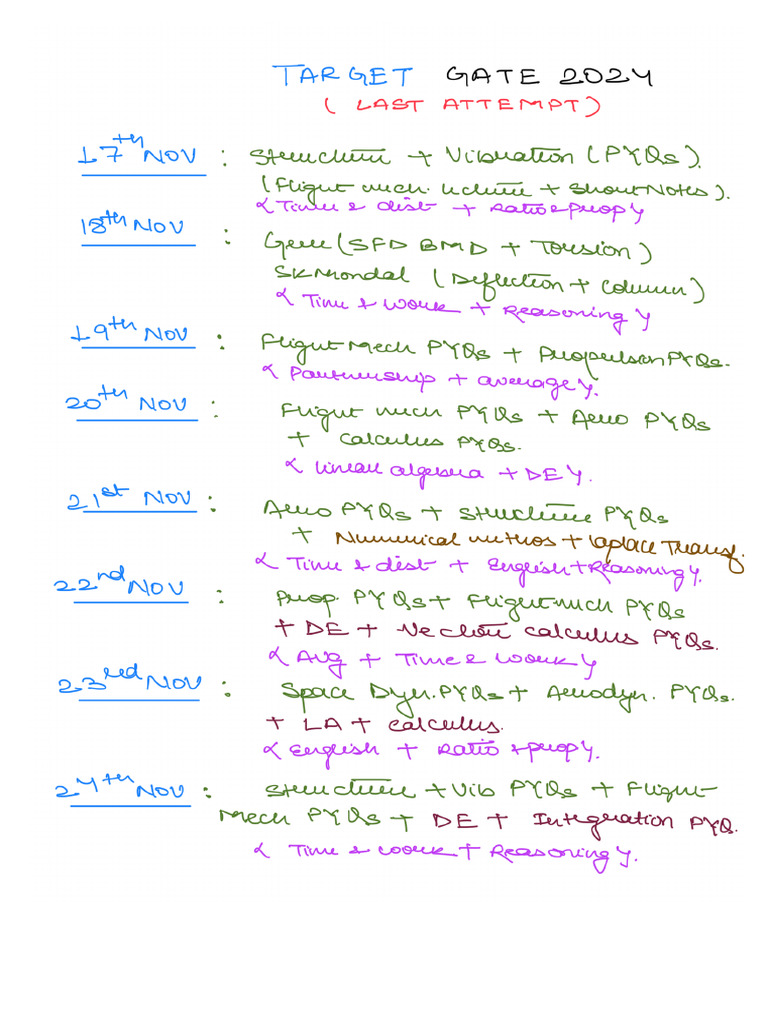 TARGET GATE 2024
(LAST ATTEMPT)
17th NOV : Structure + Vibration (PYQs).
(Flight mech. lecture + Short Notes).
{Time & dist + Ratio & prop}
18th NOV : Gere (SFD BMD + Torsion)
SK Mondal (Deflection + Column)
{Time & Work + Reasoning}
19th NOV : Flight Mech PYQs + Propulsion PYQs.
{Partnership + average}.
20th NOV : Flight mech PYQs + Aero PYQs
+ Calculus PYQs.
{linear algebra + DE}.
21st NOV : Aero PYQs + Structure PYQs
+ Numerical methos + laplace Transf.
{Time & dist + English + Reasoning}.
22nd NOV : Prop. PYQs + Flight mech PYQs
+ DE + Vector calculus PYQs.
{Avg + Time & work}
23rd NOV : Space Dyn. PYQs + Aerodyn. PYQs.
+ LA + calculus.
{English + Ratio & prop}.
24th NOV : Structure + Vib PYQs + Flight
Mech PYQs + DE + Integration PYQ.
{Time & work + Reasoning}.